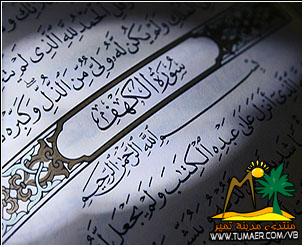 الْحَمْدُ لِلَّهِ الَّذِي لَمْ
وَلَمْ يَكُن لَّهُ وَلِيٌّ مِّنَ الذُّلِّ وَكَبِّرْهُ
سُورَةُ الْكَهْفِ
بِسْمِ اللَّهِ الرَّحْمَٰنِ الرَّحِيمِ
أَنزَلَ عَلَىٰ عَبْدِهِ الْكِتَابَ وَلَمْ يَجْعَل
منتدى مدينة تمير
WWW.TUMAER.COM/VB